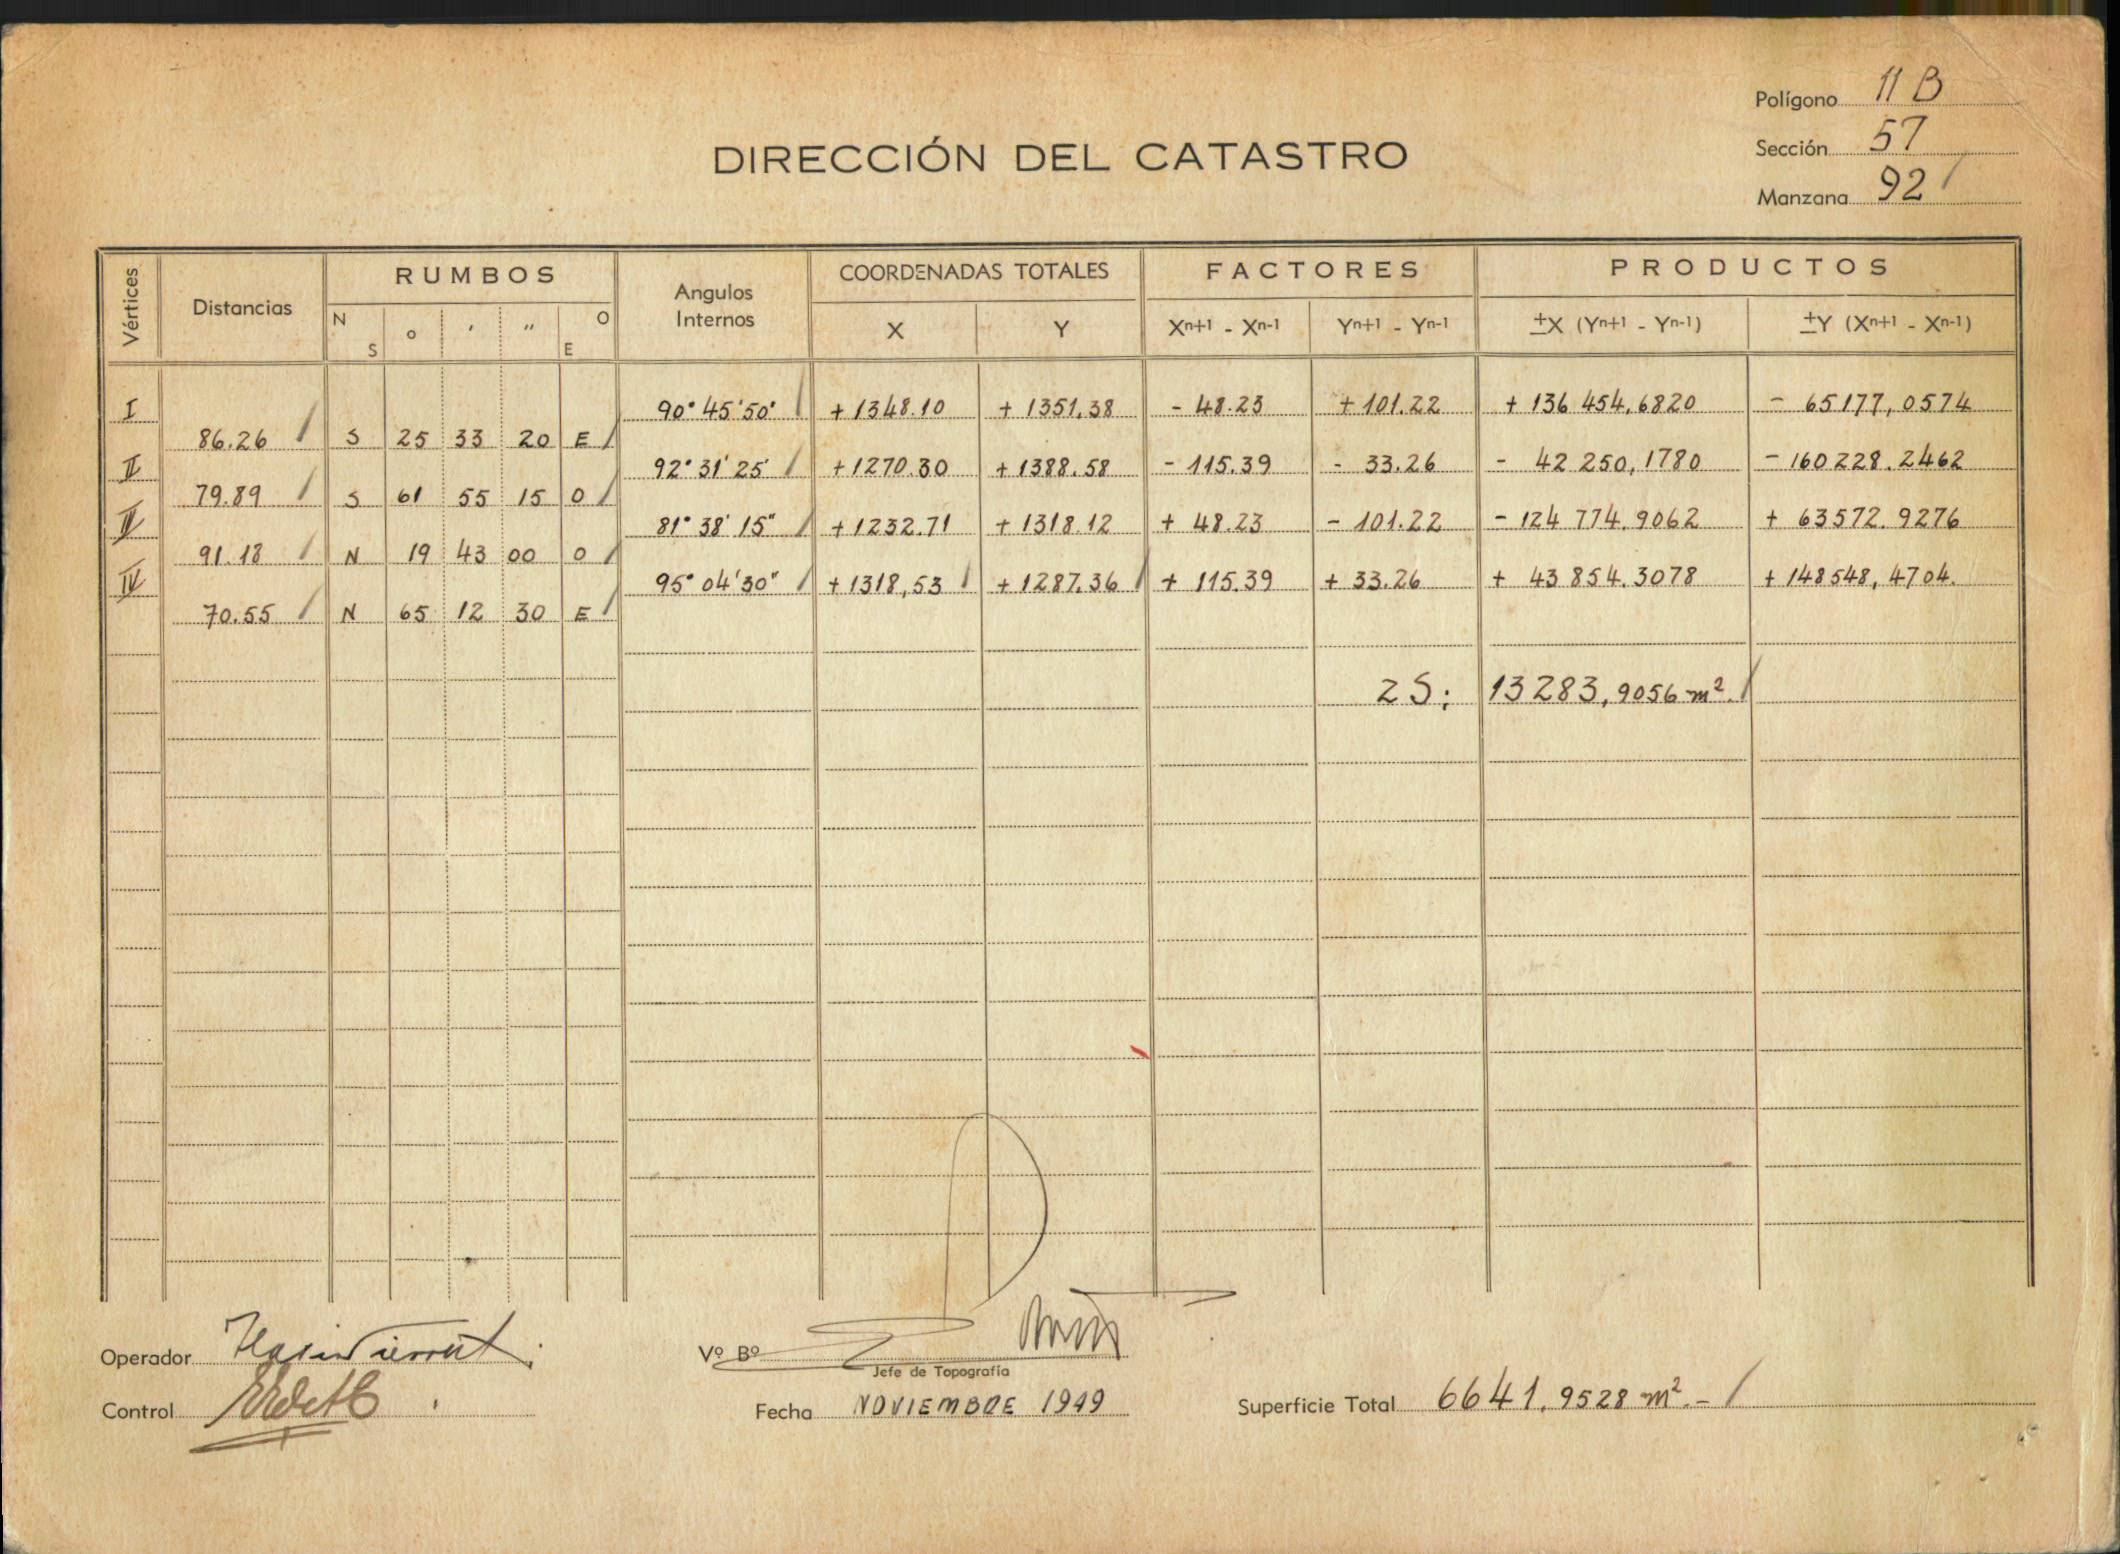 Polígono 11 B
Sección 57
Manzana 92
DIRECCIÓN DEL CATASTRO
Vértices Distancias RUMBOS Angulos Internos COORDENADAS TOTALES FACTORES PRODUCTOS
N S o ' " O E X Y Xn+1 - Xn-1 Yn+1 - Yn-1 ±X (Yn+1 - Yn-1) ±Y (Xn+1 - Xn-1)
I 90° 45' 50" + 1348.10 + 1351,38 - 48.23 + 101.22 + 136 454,6820 - 65177,0574
86.26 S 25 33 20 E
II 92° 31' 25" + 1270.30 + 1388.58 - 115.39 - 33.26 - 42 250,1780 - 160228.2462
79.89 S 61 55 15 O
81° 38' 15" + 1232.71 + 1318.12 + 48.23 - 101.22 - 124 774.9062 + 63572.9276
91.18 N 19 43 00 O
IV 95° 04' 30" + 1318,53 + 1287.36 + 115.39 + 33.26 + 43 854.3078 + 148548,4704.
70.55 N 65 12 30 E
2 S; 13283,9056 m².
Operador
Vº Bº
Jefe de Topografía
Control
Fecha NOVIEMBRE 1949
Superficie Total 6641.9528 m².-